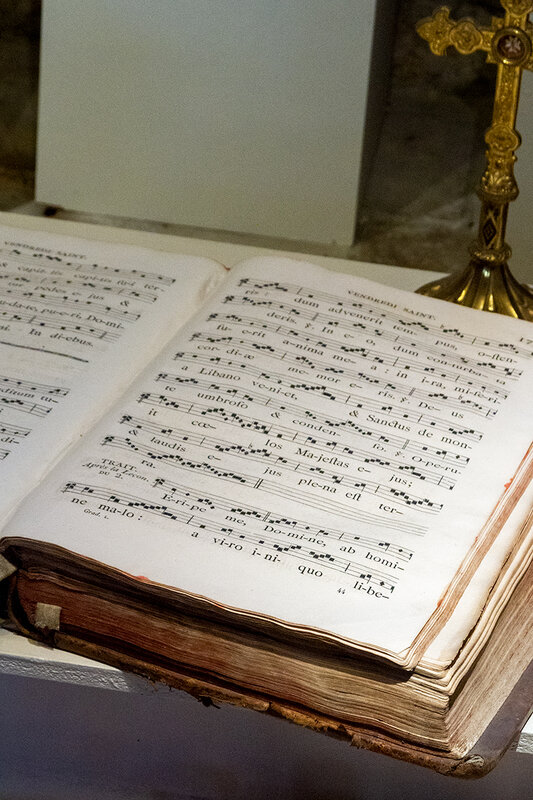 VENDREDI SAINT.
jus &
da-te, pu-e-ri, Do-mi-
ni. In di-ebus.
VENDREDI SAINT. 17
dum advenerit tem- pus, o-sten-
deris. ℣. In e- o, dum
fu-e-rit a-nima me- a : in i-ra, mi-se-ri-
cor- di-æ me-mor e- ris. ℣. De- us
a Libano ve-ni-et, & Sanctus de mon-
te umbroso & conden- so. ℣. O-pe-ru-
it cœ- los Ma-jestas e- jus;
& laudis e- jus ple-na est ter-
ra.
TRAIT.
Après la Leçon.
DU 2.
E-ri-pe me, Do-mi-ne, ab homi-
ne ma-lo : a vi-ro i-ni- quo li-be-
Grad. 1. 44